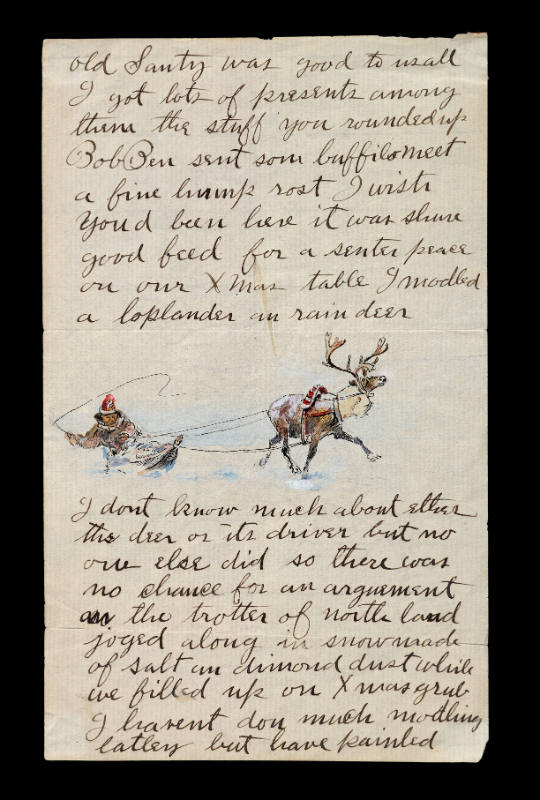 old Santy was good to us all
I got lots of presents among
them the stuff you rounded up
Bob Ben sent som buffilo meet
a fine hump rost I wish
youd been here it was shure
good feed for a senter peace
on our X Mas table I modled
a loplander an rain deer
I dont know much about ether
the deer or its driver but no
one else did so there was
no chance for an arguement
an the trotter of north land
joged along in snow made
of salt an dimond dust while
we filled up on X mas grub
I havent don much modling
latley but have painted